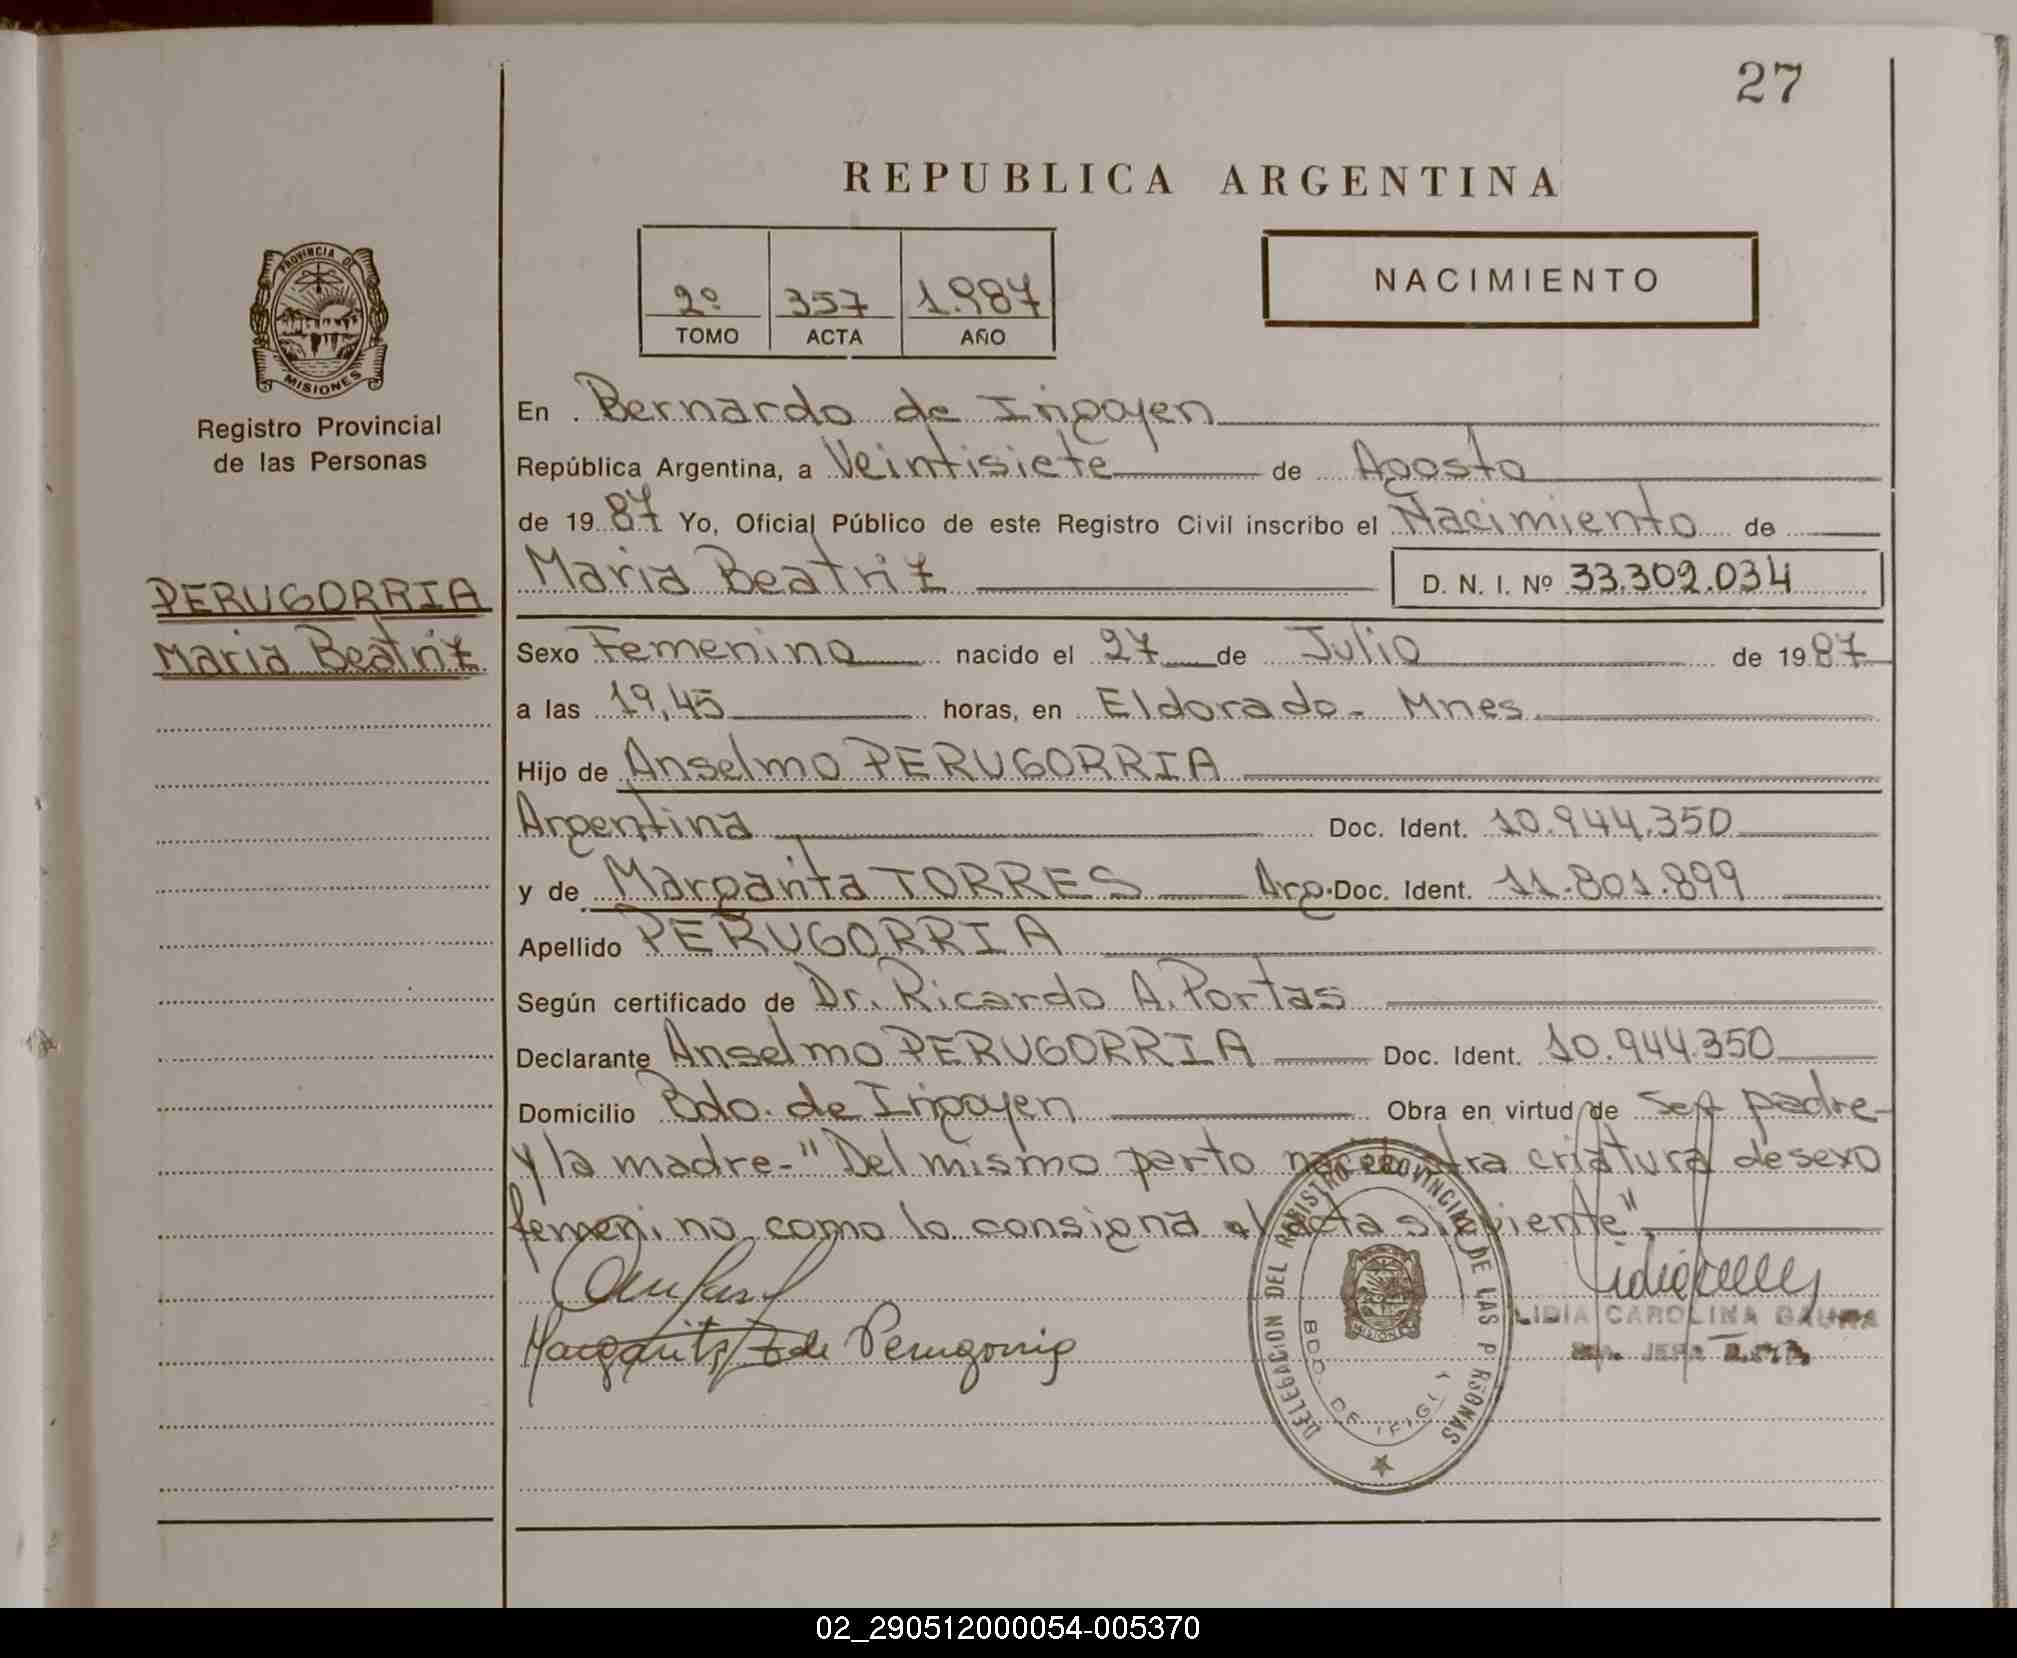 27
REPUBLICA ARGENTINA
PROVINCIA DE
MISIONES
Registro Provincial
de las Personas
2º 357 1.987
TOMO ACTA AÑO
NACIMIENTO
PERUGORRIA
Maria Beatriz
En Bernardo de Irigoyen
República Argentina, a Veintisiete de Agosto
de 1987 Yo, Oficial Público de este Registro Civil inscribo el Nacimiento de
Maria Beatriz D. N. I. Nº 33.302.034
Sexo Femenino nacido el 27 de Julio de 1987
a las 19,45 horas, en Eldorado - Mnes
Hijo de Anselmo PERUGORRIA
Argentina Doc. Ident. 10.944.350
y de Margarita TORRES Arg. Doc. Ident. 11.801.899
Apellido PERUGORRIA
Según certificado de Dr. Ricardo A. Portas
Declarante Anselmo PERUGORRIA Doc. Ident. 10.944.350
Domicilio Bdo. de Irigoyen Obra en virtud de ser padre-
y la madre-"Del mismo parto nace otra criatura de sexo
femenino como lo consigna el acta siguiente"
Margarita T de Perugorria
DELEGACION DEL REGISTRO PROVINCIAL DE LAS P RSONAS
BDO. DE
MISIONES
LIDIA CAROLINA
JEFA
02_290512000054-005370